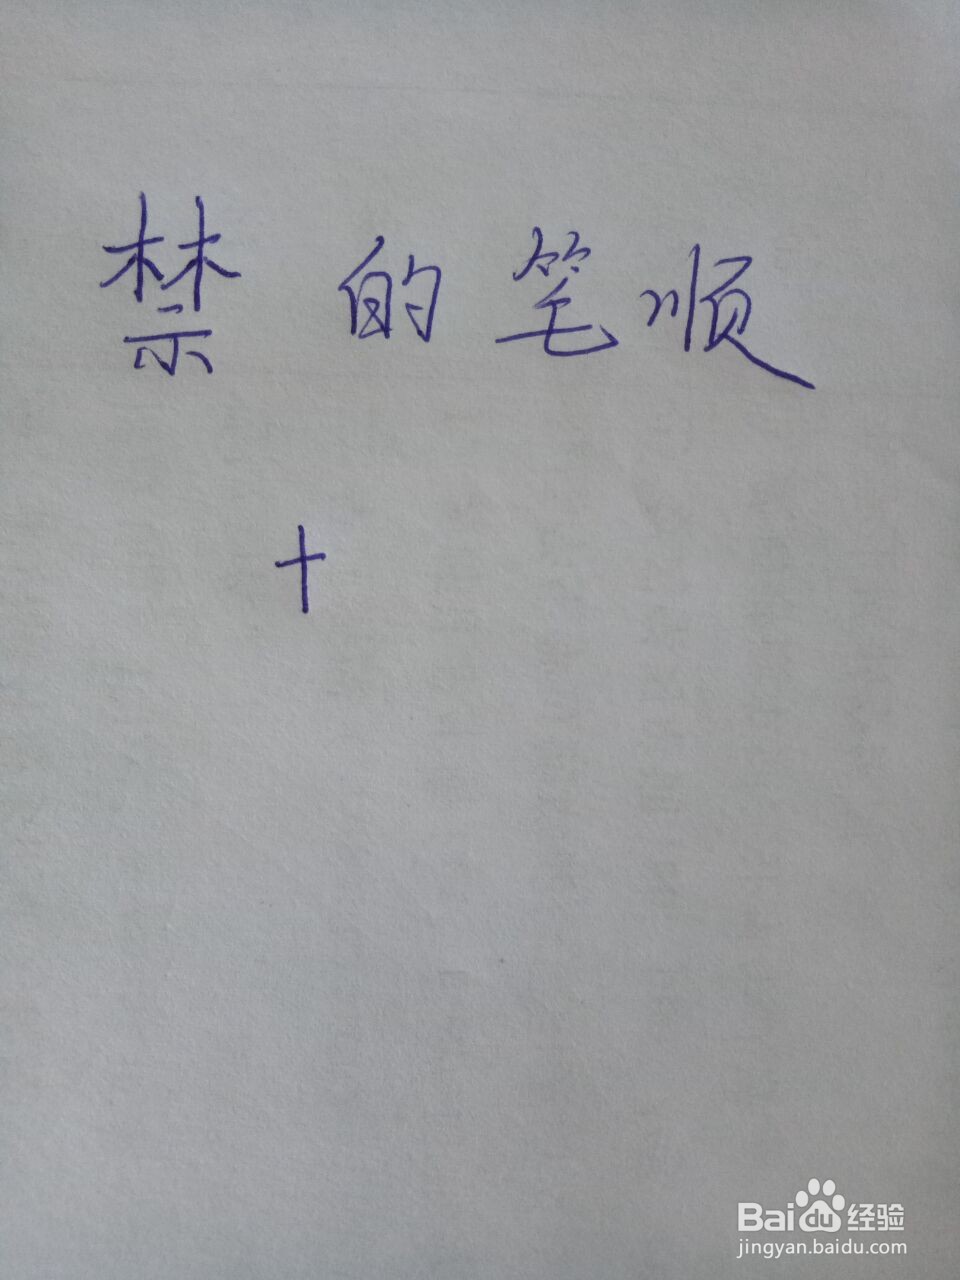 禁的笔顺
十
Baidu经验
jingyan.baidu.com